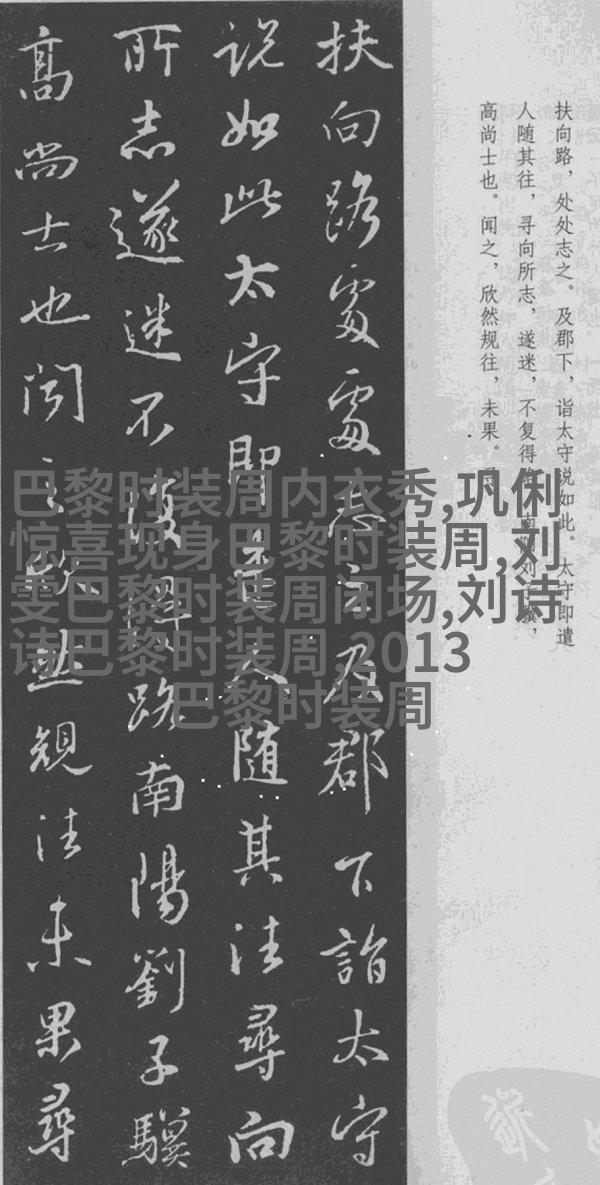 扶向路，处处志之。及郡下，诣太守说如此。太守即遣
人随其往，寻向所志，遂迷，不复得路。南阳刘子骥，
高尚士也。闻之，欣然规往，未果。寻
扶向路處處志之及郡下詣太守
说如此太守即遣人随其往尋向
所志遂迷不復得路南陽劉子驥
高尚士也闻之欣然規往未果尋
巴黎时装周内衣秀,巩俐
惊喜现身巴黎时装周,刘
雯巴黎时装周闭场,刘诗
诗巴黎时装周,2013
巴黎时装周